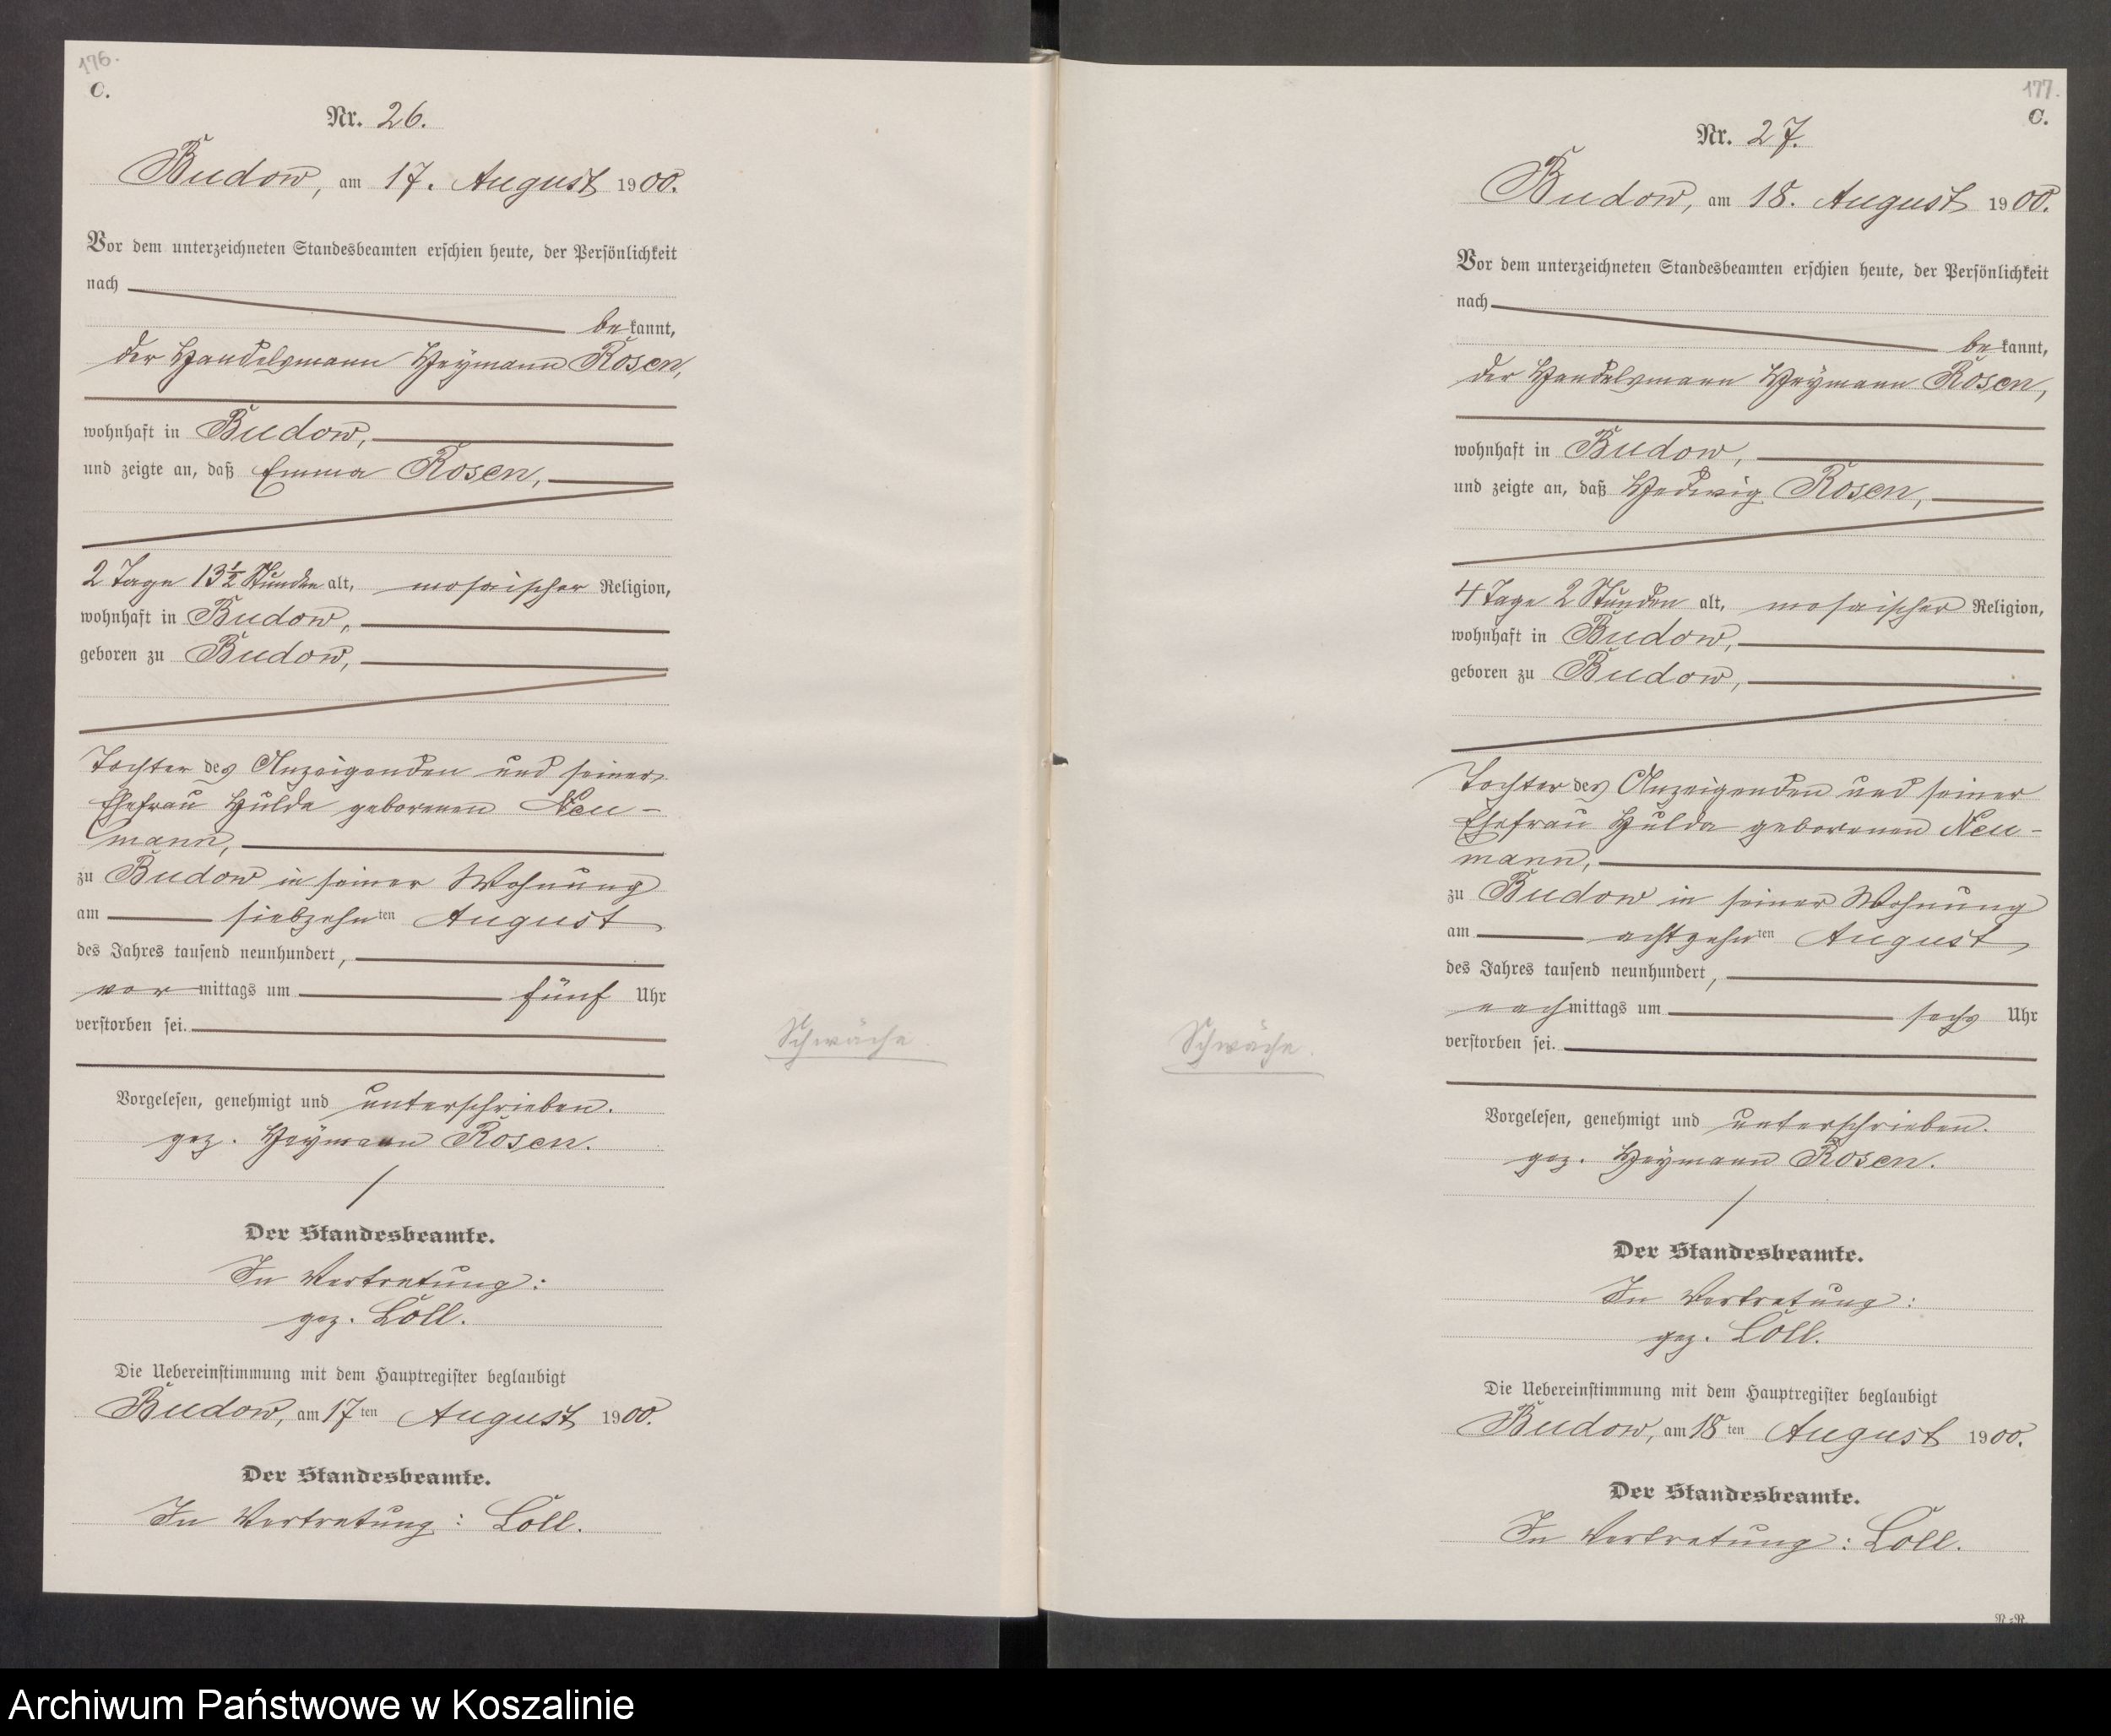 176.
C.
Nr. 26.
Budow, am 17. August 1900.
Vor dem unterzeichneten Standesbeamten erschien heute, der Persönlichkeit
nach
be kannt,
der Handelsmann Heymann Rosen,
wohnhaft in Budow,
und zeigte an, daß Emma Rosen,
2 Tage 13½ Stunden alt, mosaischer Religion,
wohnhaft in Budow,
geboren zu Budow,
Tochter des Anzeigenden und seiner
Ehefrau Hulda geborenen Neu-
mann,
zu Budow in seiner Wohnung
am siebzehnten August
des Jahres tausend neunhundert,
vor mittags um fünf Uhr
verstorben sei.
Schwäche.
Vorgelesen, genehmigt und unterschrieben.
gez. Heymann Rosen.
Der Standesbeamte.
In Vertretung:
gez. Loll.
Die Uebereinstimmung mit dem Hauptregister beglaubigt
Budow, am 17ten August 1900.
Der Standesbeamte.
In Vertretung: Loll.
177.
C.
Nr. 27.
Budow, am 18. August 1900.
Vor dem unterzeichneten Standesbeamten erschien heute, der Persönlichkeit
nach
be kannt,
der Handelsmann Heymann Rosen,
wohnhaft in Budow,
und zeigte an, daß Hedwig Rosen,
4 Tage 2 Stunden alt, mosaischer Religion,
wohnhaft in Budow,
geboren zu Budow,
Tochter des Anzeigenden und seiner
Ehefrau Hulda geborenen Neu-
mann,
zu Budow in seiner Wohnung
am achtzehnten August
des Jahres tausend neunhundert,
nach mittags um sechs Uhr
verstorben sei.
Schwäche.
Vorgelesen, genehmigt und unterschrieben.
gez. Heymann Rosen.
Der Standesbeamte.
In Vertretung:
gez. Loll.
Die Uebereinstimmung mit dem Hauptregister beglaubigt
Budow, am 18ten August 1900.
Der Standesbeamte.
In Vertretung: Loll.
Archiwum Państwowe w Koszalinie